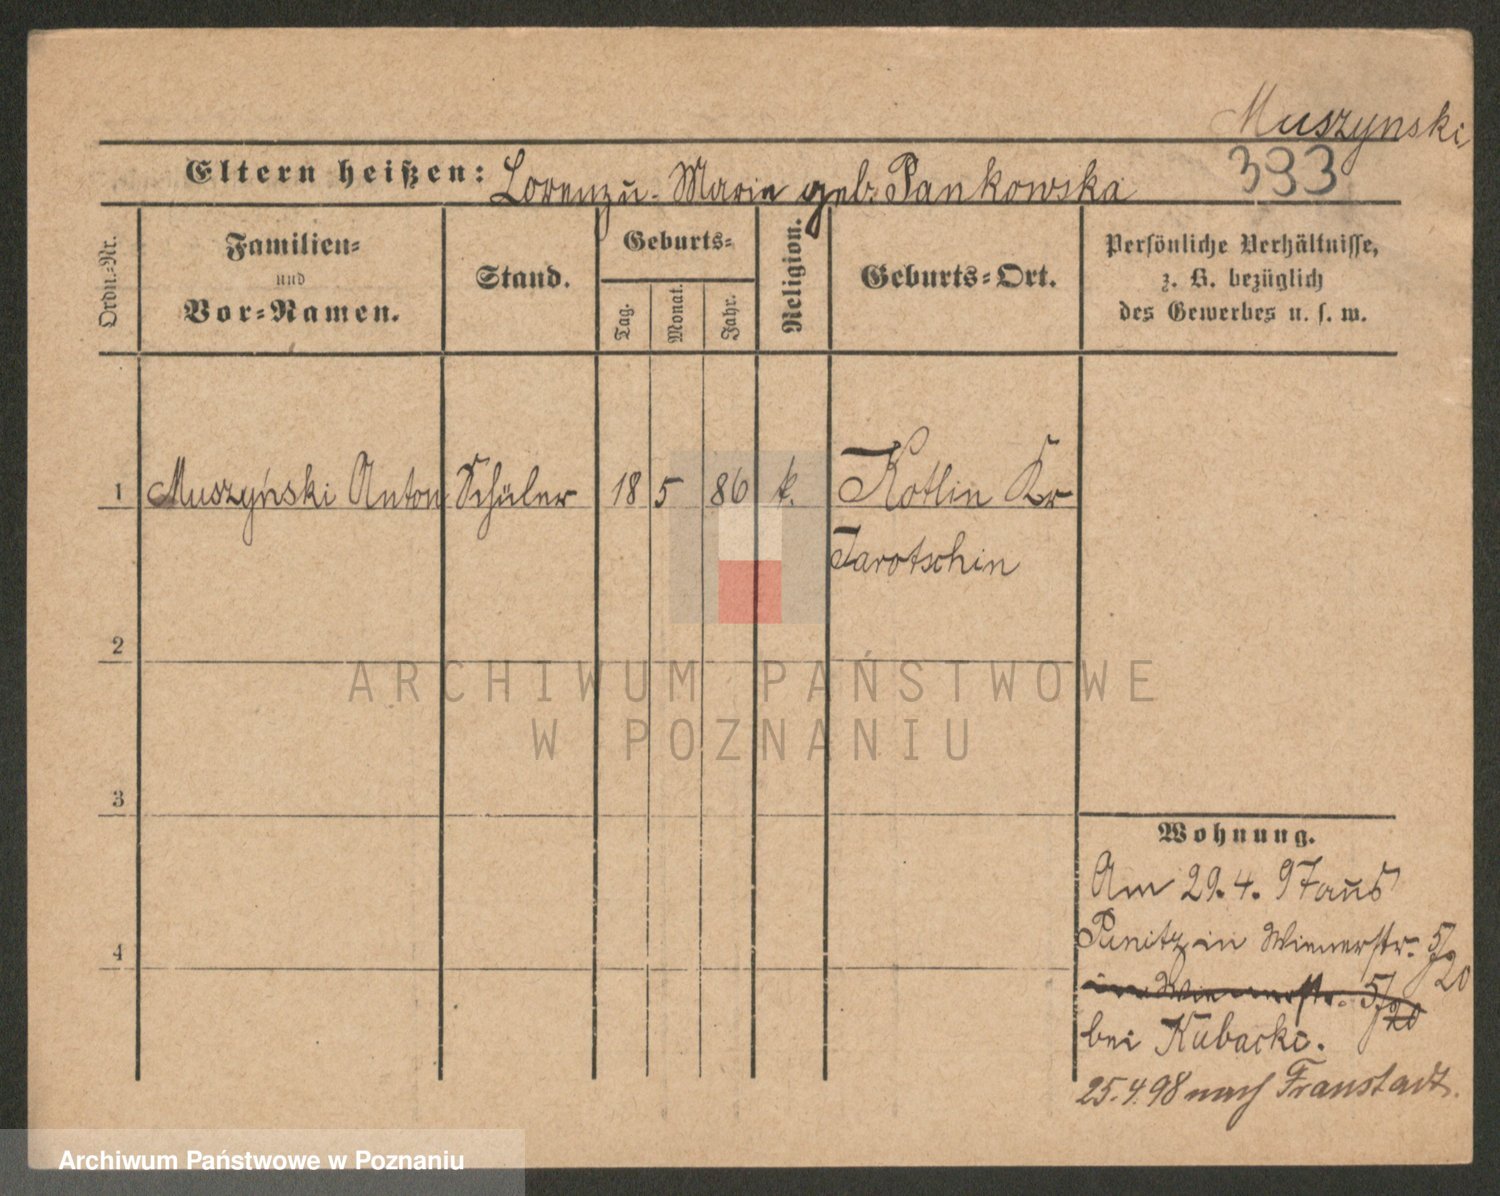 Muszynski
393
Eltern heißen: Lorenz u. Marie geb. Pankowska
Ordn.-Nr.
Familien-
und
Vor-Namen.
Stand.
Geburts-
Tag.
Monat.
Jahr.
Religion.
Geburts-Ort.
Persönliche Verhältnisse,
z. B. bezüglich
des Gewerbes u. s. w.
1 Muszyński Anton Schüler 18 5 86 k. Kotlin Kr
Jarotschin
2
3
4
ARCHIWUM PAŃSTWOWE
W POZNANIU
Wohnung.
Am 29. 4. 97 aus
Punitz in Wienerstr. 5/20
in Wienerstr. 5/20
bei Kubacki.
25.4.98 nach Fraustadt.
Archiwum Państwowe w Poznaniu